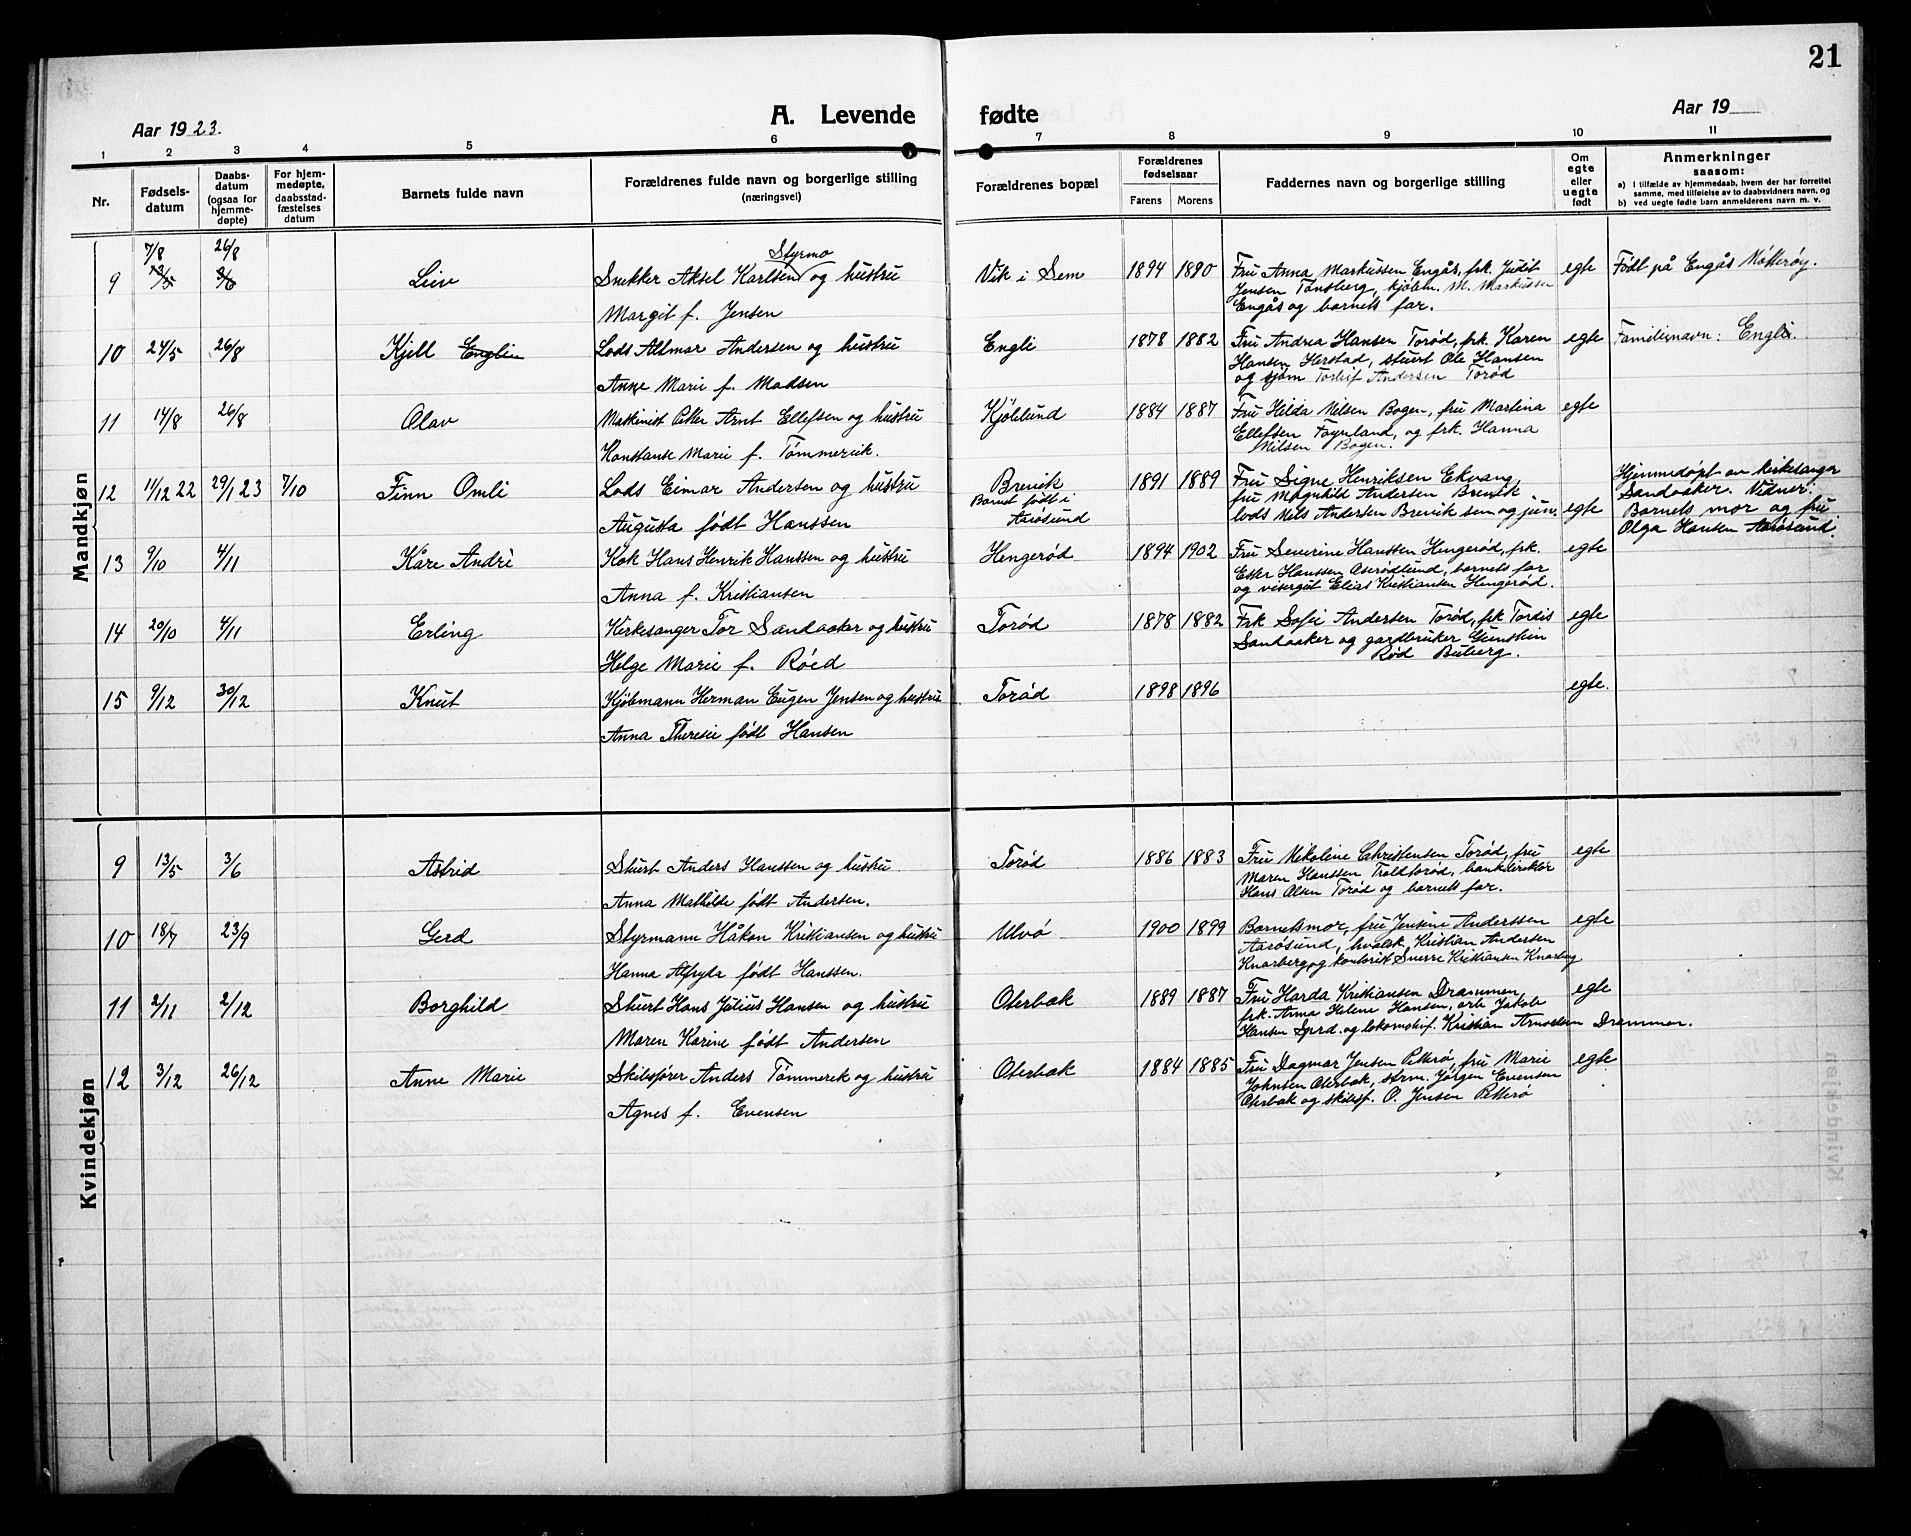 21
Aar 1923.
A. Levende fødte
Aar 19
1 2 3 4 5 6 7 8 9 10 11
Nr.
Fødsels-
datum
Daabs-
datum
(ogsaa for
hjemme-
døpte)
For hjem-
medøpte,
daabsstad-
fæstelses
datum
Barnets fulde navn
Forældrenes fulde navn og borgerlige stilling
(næringsvei)
Forældrenes bopæl
Forældrenes
fødselsaar
Farens Morens
Faddernes navn og borgerlige stilling
Om
egte
eller
uegte
født
Anmerkninger
saasom:
a) i tilfælde av hjemmedaab, hvem der har forrettet
samme, med tilføielse av to daabsvidners navn, og
b) ved uegte fødte barn anmelderens navn m. v.
Mandkjøn
7/8 26/8 Styrmo
9 13/5 3/6 Leiv Snekker Aksel Karlsen og hustru Vik i Sem 1894 1890 Fru Anna Markussen Engås, frk. Judit egte Født på Engås Nøtterøy.
Jensen Tønsberg, kjøbm. M. Markussen
Margit f. Jensen Engås og barnets far.
10 24/5 26/8 Kjell Englin Lods Allmar Andersen og hustru Engli 1878 1882 Fru Andrea Hansen Torød, frk. Karen egte Familienavn: Engli.
Hansen Herstad, stuert Ole Hansen
Anne Marie f. Madsen og sjøm Torleif Andersen Torød
11 14/8 26/8 Olav Maskinist Petter Arnt Ellefsen og hustru Kjølelund 1884 1887 Fru Hilda Nilsen Bogen, fru Martina egte
Ellefsen Føynland, og frk. Hanna
Konstanse Marie f. Tømmerek. Nilsen Bogen.
12 11/12 22 29/1 23 7/10 Finn Omli Lods Eimar Andersen og hustru Brevik 1891 1889 Fru Signe Henriksen Ekvang, Hjemmedøpt av kirkesanger
Barnet født i fru Magnhild Andersen Brevik Sandaaker. Vidner:
Aarøsund lods Nils Andersen Brevik sen og jun. egte Barnets mor og fru
Augusta født Hanssen Olga Hansen Aarøsund.
13 9/10 4/11 Kåre André Kok Hans Henrik Hanssen og hustru Hengerød 1894 1902 Fru Severine Hanssen Hengerød, frk. egte
Ester Hanssen Oserødlund, barnets far
Anna f. Kristiansen og visergut Elias Kristiansen Hengerød.
14 20/10 4/11 Erling Kirkesanger Tor Sandaaker og hustru Torød 1878 1882 Frk Sofie Andersen Torød, frk Tordis egte
Sandaaker og gardbruker Gunstein
Helge Marie f. Røed Rød Buberg.
15 9/12 30/12 Knut Kjøbmann Herman Eugen Jensen og hustru Torød 1898 1896 egte.
Anna Theresie født Hansen
Kvindekjøn
9 13/5 3/6 Astrid Stuert Anders Hanssen og hustru Torød 1886 1883 Fru Nikoline Christensen Torød, fru egte
Maren Hanssen Troldtorød, bankdirektør
Anna Mathilde født Andersen. Hans Olsen Torød og barnets far.
10 18/7 23/9 Gerd Styrmann Håkon Kristiansen og hustru Ulvø 1900 1899 Barnets mor, fru Jensine Anderssen egte
Aarøsund, hvalsk. Kristian Andersen
Hanna Alfryda født Hanssen. Knarberg og kontorist Sverre Kristiansen Knarberg
11 2/11 2/12 Borghild Stuert Hans Julius Hansen og hustru Oterbæk 1889 1887 Fru Harda Kristiansen Drammen, egte
frk. Anna Helene Hansen, arb Jakob
Maren Karine født Andersen Hansen Sprd. og lokomotivf. Kristian Arnoldsen Drammen.
12 3/12 26/12 Anne Marie Skibsfører Anders Tømmerek og hustru Oterbæk 1884 1885 Fru Dagmar Jensen Petterø, fru Marie egte
Johnsen Oterbæk, strm. Jørgen Evensen
Agnes f. Evensen Oterbæk og skibsf. O. Jensen Petterø